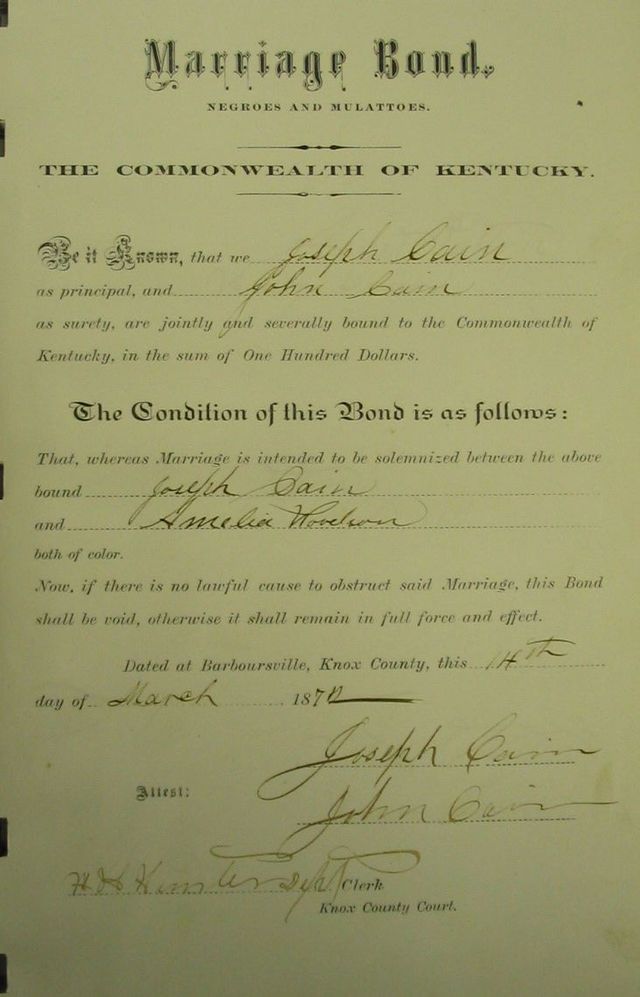 Marriage Bond.
NEGROES AND MULATTOES.
THE COMMONWEALTH OF KENTUCKY.
Be it Known, that we Joseph Cain
as principal, and John Cain
as surety, are jointly and severally bound to the Commonwealth of
Kentucky, in the sum of One Hundred Dollars.
The Condition of this Bond is as follows:
That, whereas Marriage is intended to be solemnized between the above
bound Joseph Cain
and Amelia
both of color.
Now, if there is no lawful cause to obstruct said Marriage, this Bond
shall be void, otherwise it shall remain in full force and effect.
Dated at Barboursville, Knox County, this 14th
day of March 187
Joseph Cain
Attest:
John Cain
Clerk
Knox County Court.